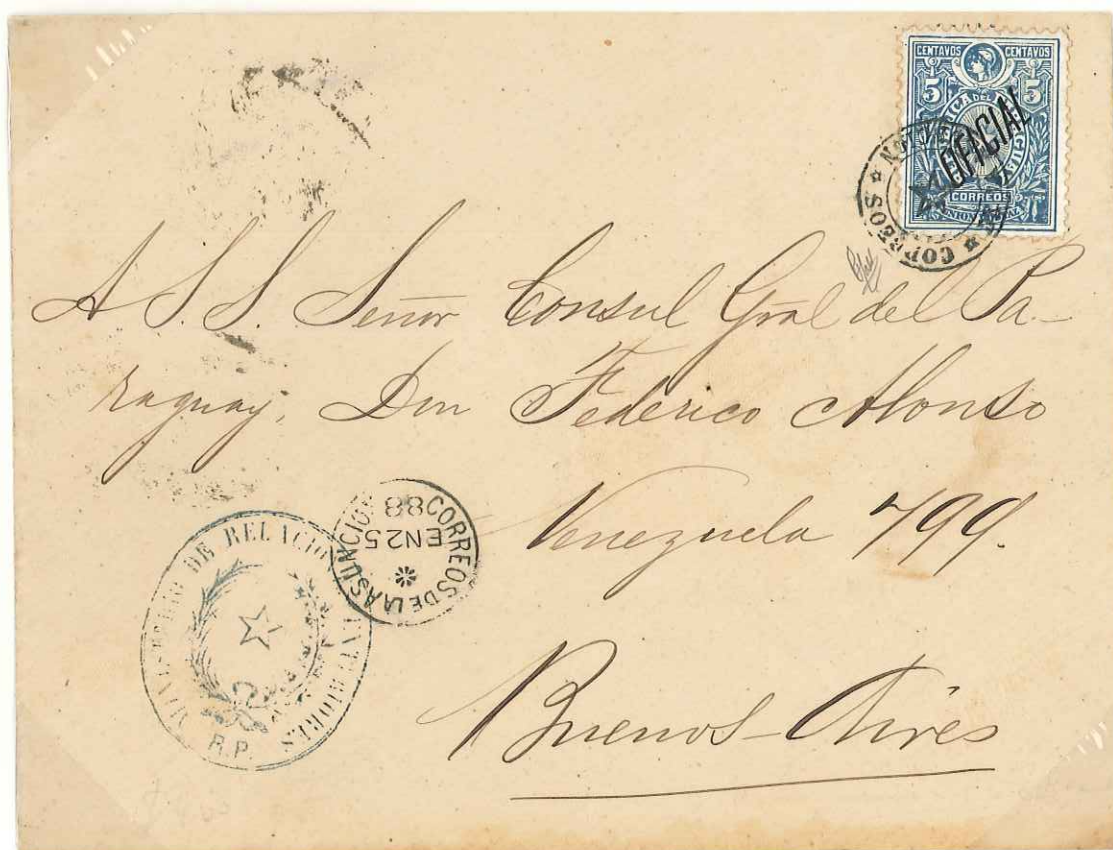 CENTAVOS CENTAVOS
5 5
OFICIAL
CORREOS
CORREOS
A S.S. Señor Consul Gral del Pa-
raguay, Don Federico Alonso
Venezuela 799.
Buenos-Aires
CORREOS DE LA ASUNCION
EN 25
88
MINISTERIO DE RELACIONES EXTERIORES
R.P.